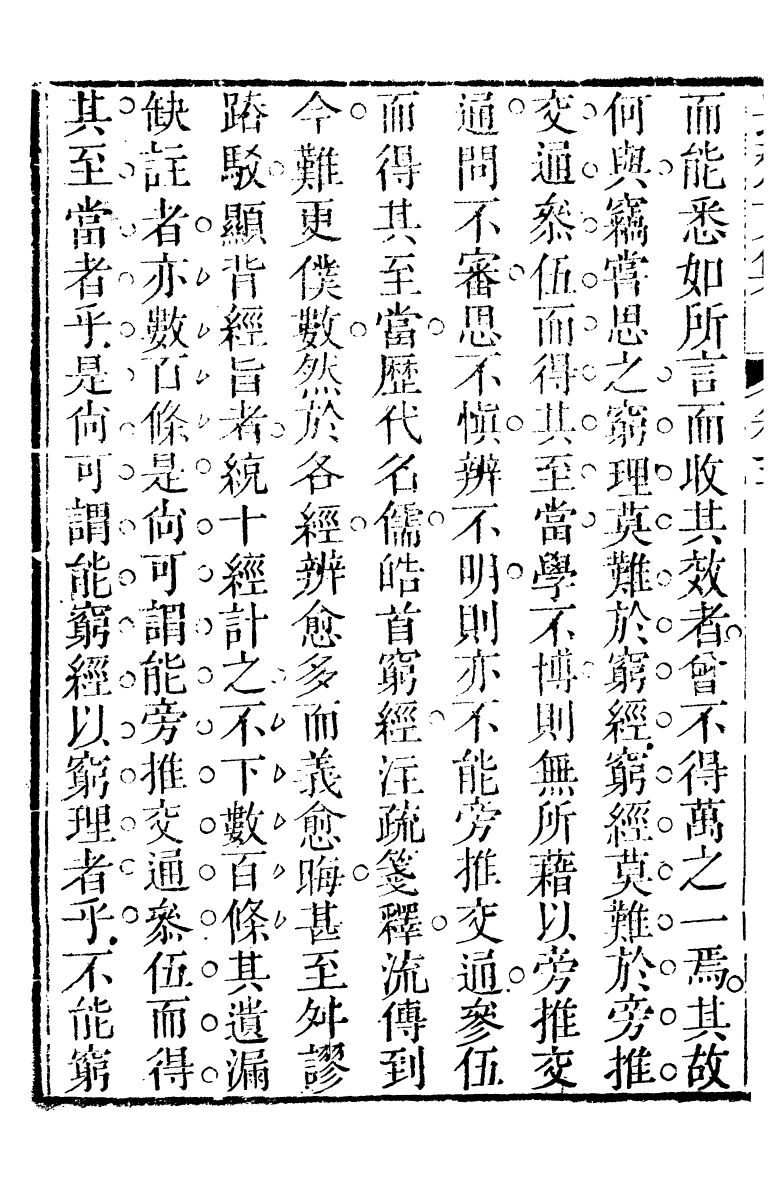 而能悉如所言而收其效者曾不得萬之一焉其故
何與竊嘗思之窮理莫難於窮經窮經莫難於旁推
交通叅伍而得其至當學不博則無所藉以旁推交
通問不審思不愼辨不明則亦不能旁推交通參伍
而得其至當歴代名儒皓首窮經注疏箋釋流傳到
今難更僕數然於各經辨愈多而義愈晦甚至舛謬
踳駁顯背經旨者統十經計之不下數百條其遺漏
缺註者亦數百條是尙可謂能旁推交通叅伍而得
其至當者乎是尙可謂能窮經以窮理者乎不能窮